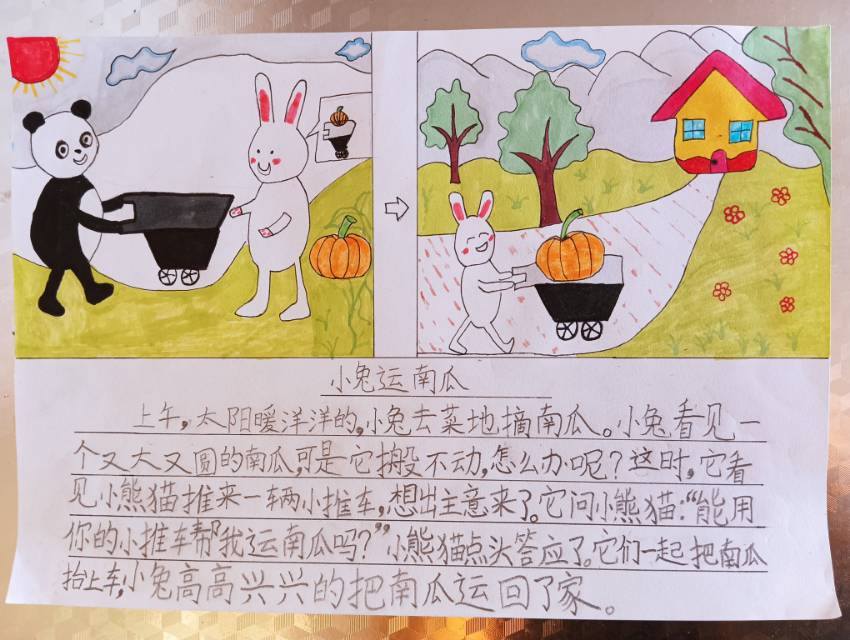 小兔运南瓜
上午，太阳暖洋洋的，小兔去菜地摘南瓜。小兔看见一
个又大又圆的南瓜，可是它搬不动，怎么办呢？这时，它看
见小熊猫推来一辆小推车，想出主意来了。它问小熊猫：“能用
你的小推车帮我运南瓜吗？”小熊猫点头答应了。它们一起把南瓜
抬上车，小兔高高兴兴的把南瓜运回了家。